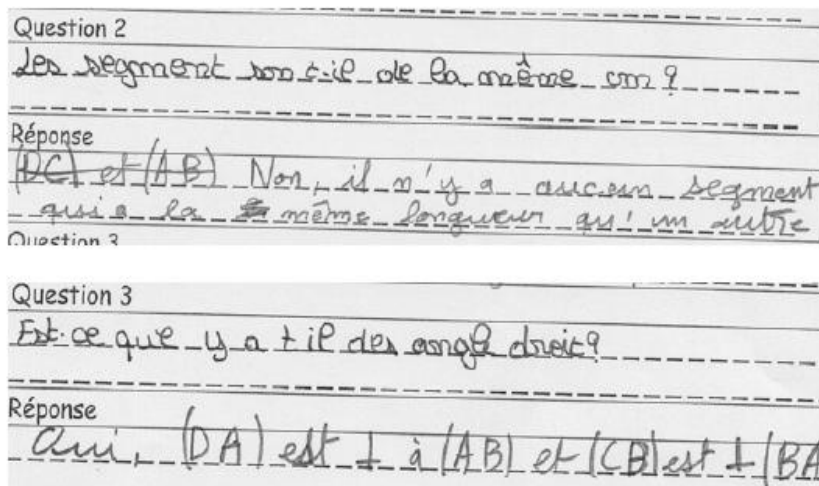 Question 2
Les segment son t-il de la même cm ?
Réponse
(DC) et (AB) Non, il n'y a aucun segment
qui a la même longueur qu'un autre
Question 3
Question 3
Est-ce que y a t il des angle droit ?
Réponse
Oui, (DA) est ⊥ à (AB) et (CB) est ⊥ (BA